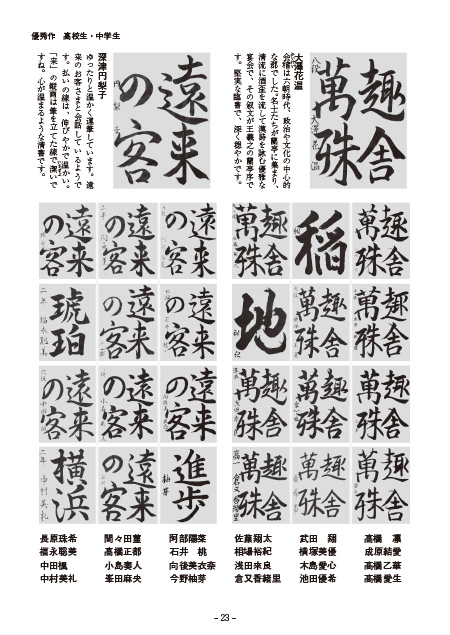 優秀作 高校生・中学生
趣舎
萬殊
八段 大澤花温
大澤花温
会稽は六朝時代、政治や文化の中心的
な郡でした。名士たちが蘭亭に集まり、
清流に酒盃を流して漢詩を詠む優雅な
宴会で、その叙文が王羲之の蘭亭序で
す。堅実な臨書で、深く穏やかです。
遠来
の客
円梨子
深津円梨子
ゆったりと温かく運筆しています。遠
来のお客さまと会話しているようで
す。払いの線は、伸びやかで温かい。
「来」の縦画は筆を立てた線で潔いで
すね。心が温まるような清書です。
趣舎
萬殊
稲
趣舎
萬殊
遠来
の客
遠来
の客
遠来
の客
趣舎
萬殊
趣舎
萬殊
地
遠来
の客
遠来
の客
琥珀
二年 福永聡美
趣舎
萬殊
趣舎
萬殊
趣舎
萬殊
遠来
の客
遠来
の客
遠来
の客
趣舎
萬殊
趣舎
萬殊
趣舎
萬殊
進歩
柚芽
遠来
の客
横浜
二年 中村美礼
髙橋 凛
成原結愛
髙橋乙華
髙橋愛生
武田 翔
横塚美優
木島愛心
池田優希
佐藤翔太
相場裕紀
浅田来良
倉又香緒里
阿部陽菜
石井 桃
向後美衣奈
今野柚芽
間々田菫
髙橋正都
小島奏人
峯田麻央
長原珠希
福永聡美
中田楓
中村美礼
– 23 –